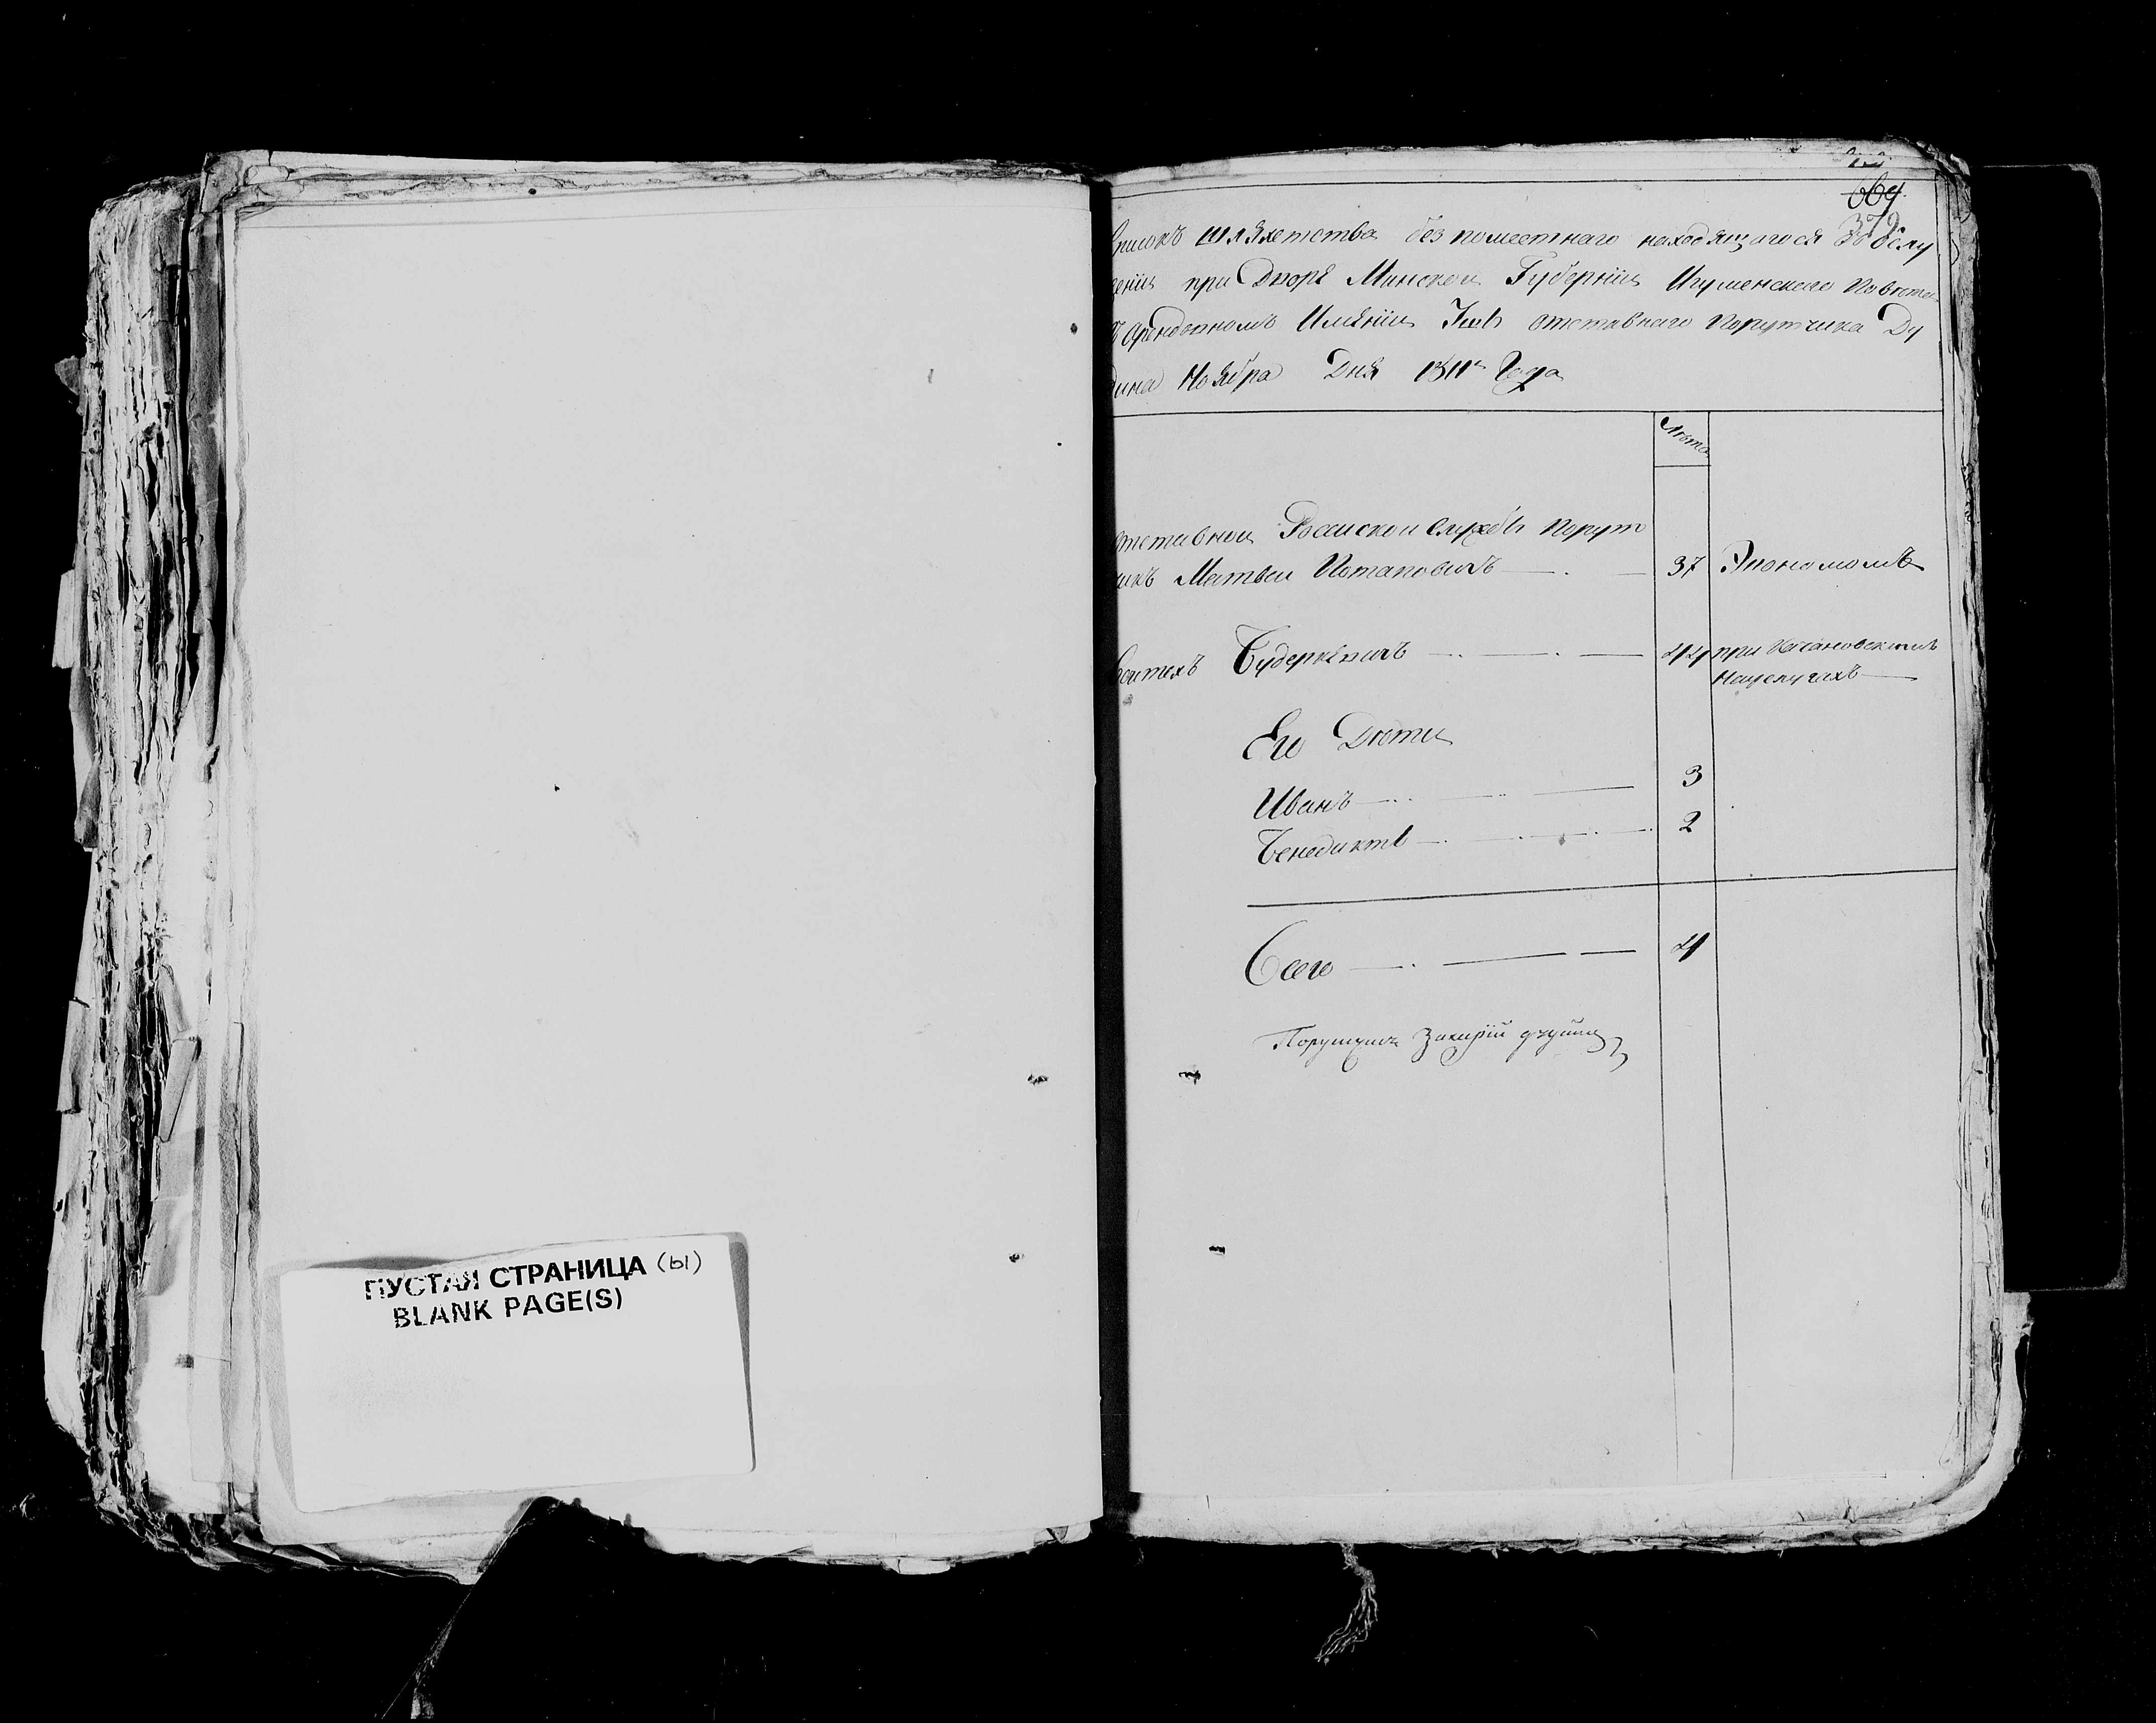 ПУСТАЯ СТРАНИЦА (ы)
BLANK PAGE(S)
669.
379
Списокъ шляхетства без поместнаго находящагося въ услу
жении при Дворе Минской Губернии Игуменскаго Повета
въ Арендовномъ Имении отставнаго Порутчика Ду
дина Ноября Дня 1811го Года
Лета
отставной Росииской службы порут
чикъ Матвеи Потаповичъ 37 Экономомъ
Воитехъ Будеркевичъ 44 при
Его Дети
Иванъ 3
Бенедиктъ 2
Всего 4
Порутчикъ Захарий